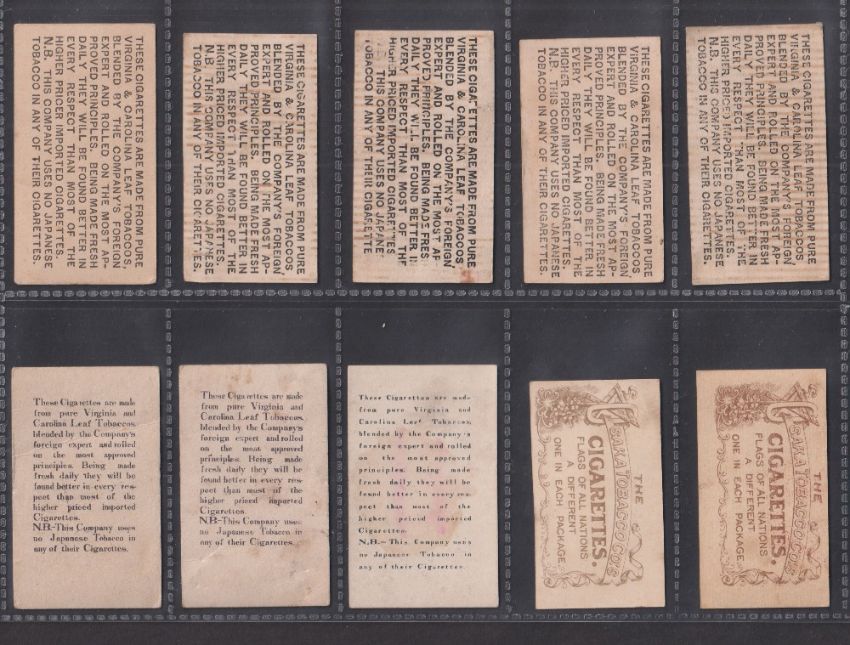 THESE CIGARETTES ARE MADE FROM PURE
VIRGINIA & CAROLINA LEAF TOBACCOS
BLENDED BY THE COMPANY'S FOREIGN
EXPERT AND ROLLED ON THE MOST AP-
PROVED PRINCIPLES. BEING MADE FRESH
DAILY THEY WILL BE FOUND BETTER IN
EVERY RESPECT THAN MOST OF THE
HIGHER PRICED IMPORTED CIGARETTES.
N.B. THIS COMPANY USES NO JAPANESE
TOBACCO IN ANY OF THEIR CIGARETTES.
THESE CIGARETTES ARE MADE FROM PURE
VIRGINIA & CAROLINA LEAF TOBACCOS
BLENDED BY THE COMPANY'S FOREIGN
EXPERT AND ROLLED ON THE MOST AP-
PROVED PRINCIPLES. BEING MADE FRESH
DAILY THEY WILL BE FOUND BETTER IN
EVERY RESPECT THAN MOST OF THE
HIGHER PRICED IMPORTED CIGARETTES.
N.B. THIS COMPANY USES NO JAPANESE
TOBACCO IN ANY OF THEIR CIGARETTES.
THESE CIGA ETTES ARE MADE FROM PURE
VIRGINIA & CAROLINA LEAF TOBACCOS
BLENDED BY THE COMPANY'S FOREIGN
EXPERT AND ROLLED ON THE MOST AP-
PROVED PRINCIPLES. BEING MADE FRES
DAILY THEY WILL BE FOUND BETTER IN
EVERY RESPECT THAN MOST OF THE
HIGHER PRICED IMPORTED CIGARETTES
THIS COMPANY USES NO JAPANE
TOBACCO IN ANY OF THEIR CIGARETTE
THESE CIGARETTES ARE MADE FROM PURE
VIRGINIA & CAROLINA LEAF TOBACCOS
BLENDED BY THE COMPANY'S FOREIGN
EXPERT AND ROLLED ON THE MOST AP-
PROVED PRINCIPLES. BEING MADE FRESH
DAILY THEY WILL BE FOUND BETTER IN
EVERY RESPECT THAN MOST OF THE
HIGHER PRICED IMPORTED CIGARETTES.
N.B. THIS COMPANY USES NO JAPANESE
TOBACCO IN ANY OF THEIR CIGARETTES.
THESE CIGARETTES ARE MADE FROM PURE
VIRGINIA & CAROLINA LEAF TOBACCOS
BLENDED BY THE COMPANY'S FOREIGN
EXPERT AND ROLLED ON THE MOST AP-
PROVED PRINCIPLES. BEING MADE FRESH
DAILY THEY WILL BE FOUND BETTER IN
EVERY RESPECT THAN MOST OF THE
HIGHER PRICED IMPORTED CIGARETTES.
N.B. THIS COMPANY USES NO JAPANESE
TOBACCO IN ANY OF THEIR CIGARETTES.
These Cigarettes are made
from pure Virginia and
Carolina Leaf Tobaccos,
blended by the Company's
foreign expert and rolled
on the most approved
principles. Being made
fresh daily they will be
found better in every res-
pect than most of the
higher priced imported
Cigarettes.
N.B.-This Company uses
no Japanese Tobacco in
any of their Cigarettes.
These Cigarettes are made
from pure Virginia and
Carolina Leaf Tobaccos,
blended by the Company's
foreign expert and rolled
on the most approved
principles. Being made
fresh daily they will be
found better in every res-
pect than most of the
higher priced imported
Cigarettes.
N.B.-This Company uses
no Japanese Tobacco in
any of their Cigarettes.
These Cigarettes are made
from pure Virginia and
Carolina Leaf Tobaccos,
blended by the Company's
foreign expert and rolled
on the most approved
principles. Being made
fresh daily they will be
found better in every res-
pect than most of the
higher priced imported
Cigarettes.
N.B.— This Company uses
no Japanese Tobacco in
any of their Cigarettes.
THE
TOBACCO
CIGARETTES.
FLAGS OF ALL NATIONS
A DIFFERENT
ONE IN EACH PACKAGE
THE
TOBACCO
CIGARETTES.
FLAGS OF ALL NATIONS
A DIFFERENT
ONE IN EACH PACKAGE